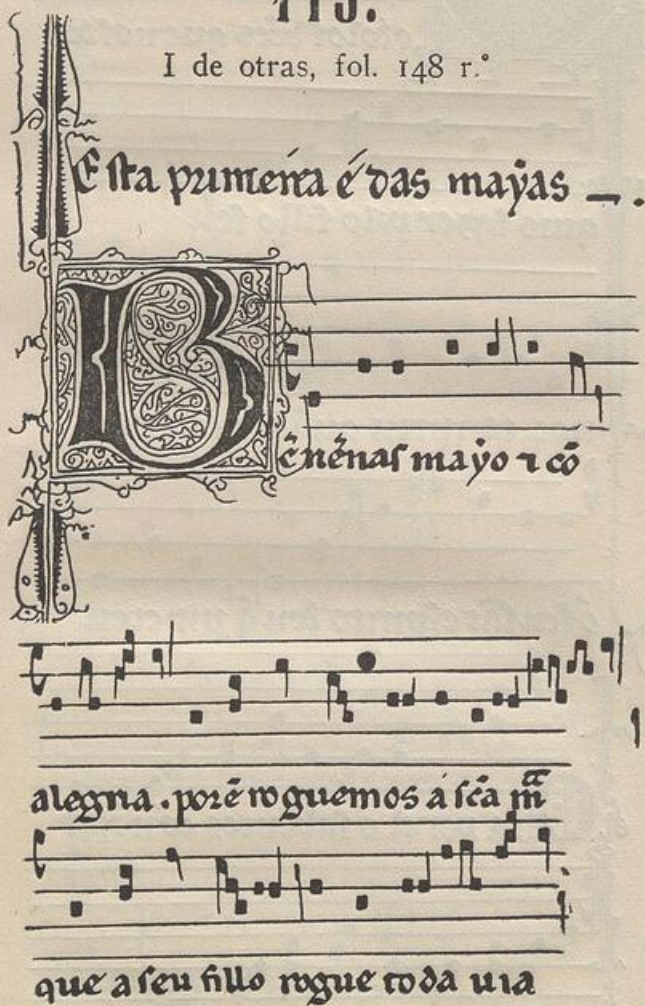 115.
I de otras, fol. 148 r.°
Esta primeira é das mayas
Bẽ uẽnas mayo ⁊ cõ
alegria . porẽ roguemos a sc̃a m̃a
que a seu fillo rogue toda uia